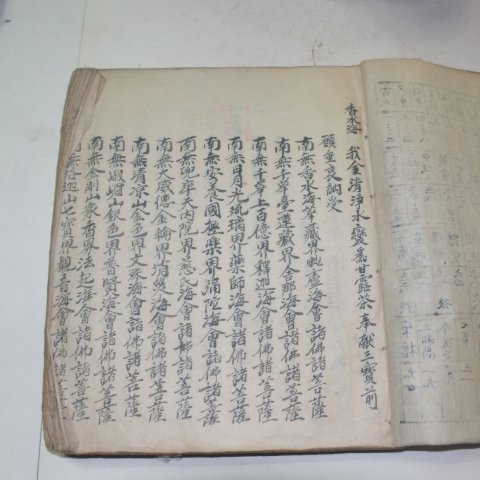 香水海 我今清淨水變爲甘露茶奉獻三寶前
願垂哀納受
南無香水海華藏界毗盧海會諸佛諸菩薩
南無千華臺蓮藏界舍那海會諸佛諸菩薩
南無千華上百億界釋迦海會諸佛諸菩薩
南無日月光琉璃界藥師海會諸佛諸菩薩
南無安養國極樂界彌陀海會諸佛諸菩薩
南無兜率天內院界慈氏海會諸佛諸菩薩
南無大威德金輪界消災海會諸佛諸菩薩
南無清凉山金色界文殊海會諸佛諸菩薩
南無峨嵋山銀色界普賢海會諸佛諸菩薩
南無金剛山衆香界法起海會諸佛諸菩薩
南無洛迦山七寶界觀音海會諸佛諸菩薩